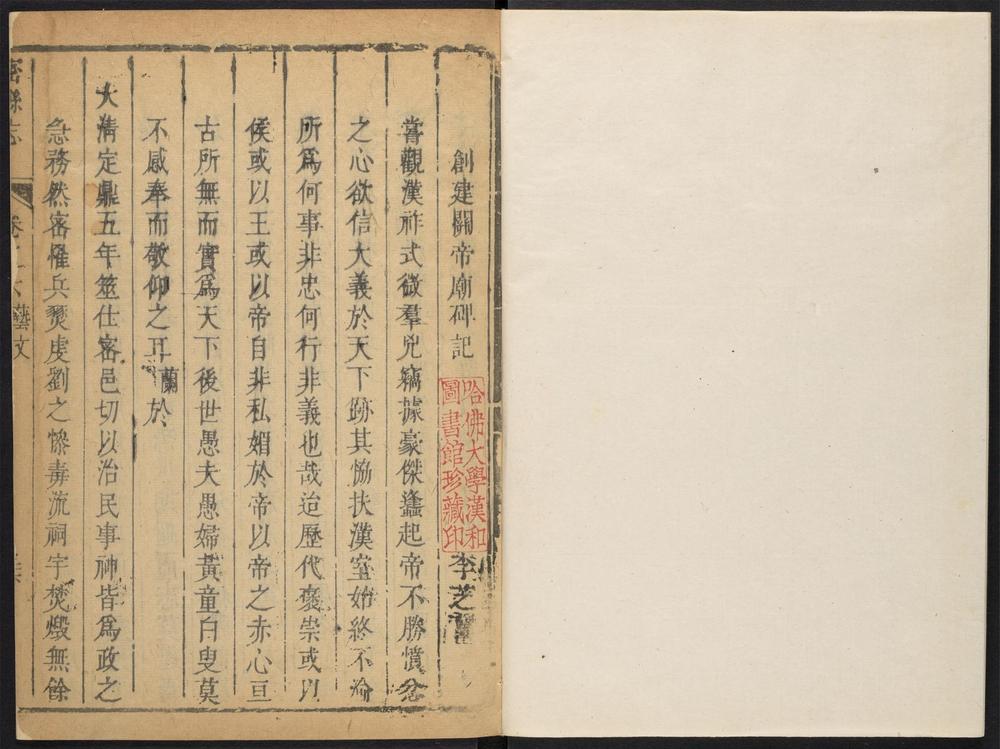 創建關帝廟碑記
李芝蘭
哈佛大學漢和
圖書館珍藏印
嘗觀漢祚式微羣兇竊據豪傑蠭起帝不勝憤忿
之心欲信大義於天下跡其恊扶漢室始終不渝
所爲何事非忠何行非義也哉迨歷代褒崇或以
侯或以王或以帝自非私媚於帝以帝之赤心亘
古所無而實爲天下後世愚夫愚婦黃童白叟莫
不感奉而敬仰之耳蘭於
大淸定鼎五年筮仕密邑切以治民事神皆爲政之
急務然密罹兵燹虔劉之慘毒流祠宇焚燬無餘
密縣志
卷
藝文